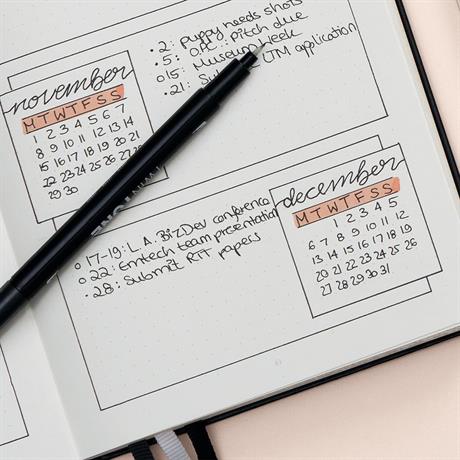 • 2: puppy needs shots
• 5: OPC: pitch due
o 15: Museum Week
• 21: application
november
M T W T F S S
1 2 3 4 5 6 7
8 9 10 11 12 13 14
15 16 17 18 19 20 21
22 23 24 25 26 27
29 30
o 17-19: L.A. BizDev conference
o 22: Emtech team presentation
• 28: Submit papers
december
M T W T F S S
1 2 3 4 5
6 7 8 9 10 11 12
13 14 15 16 17 18 19
20 21 22 23 24 25 26
27 28 29 30 31